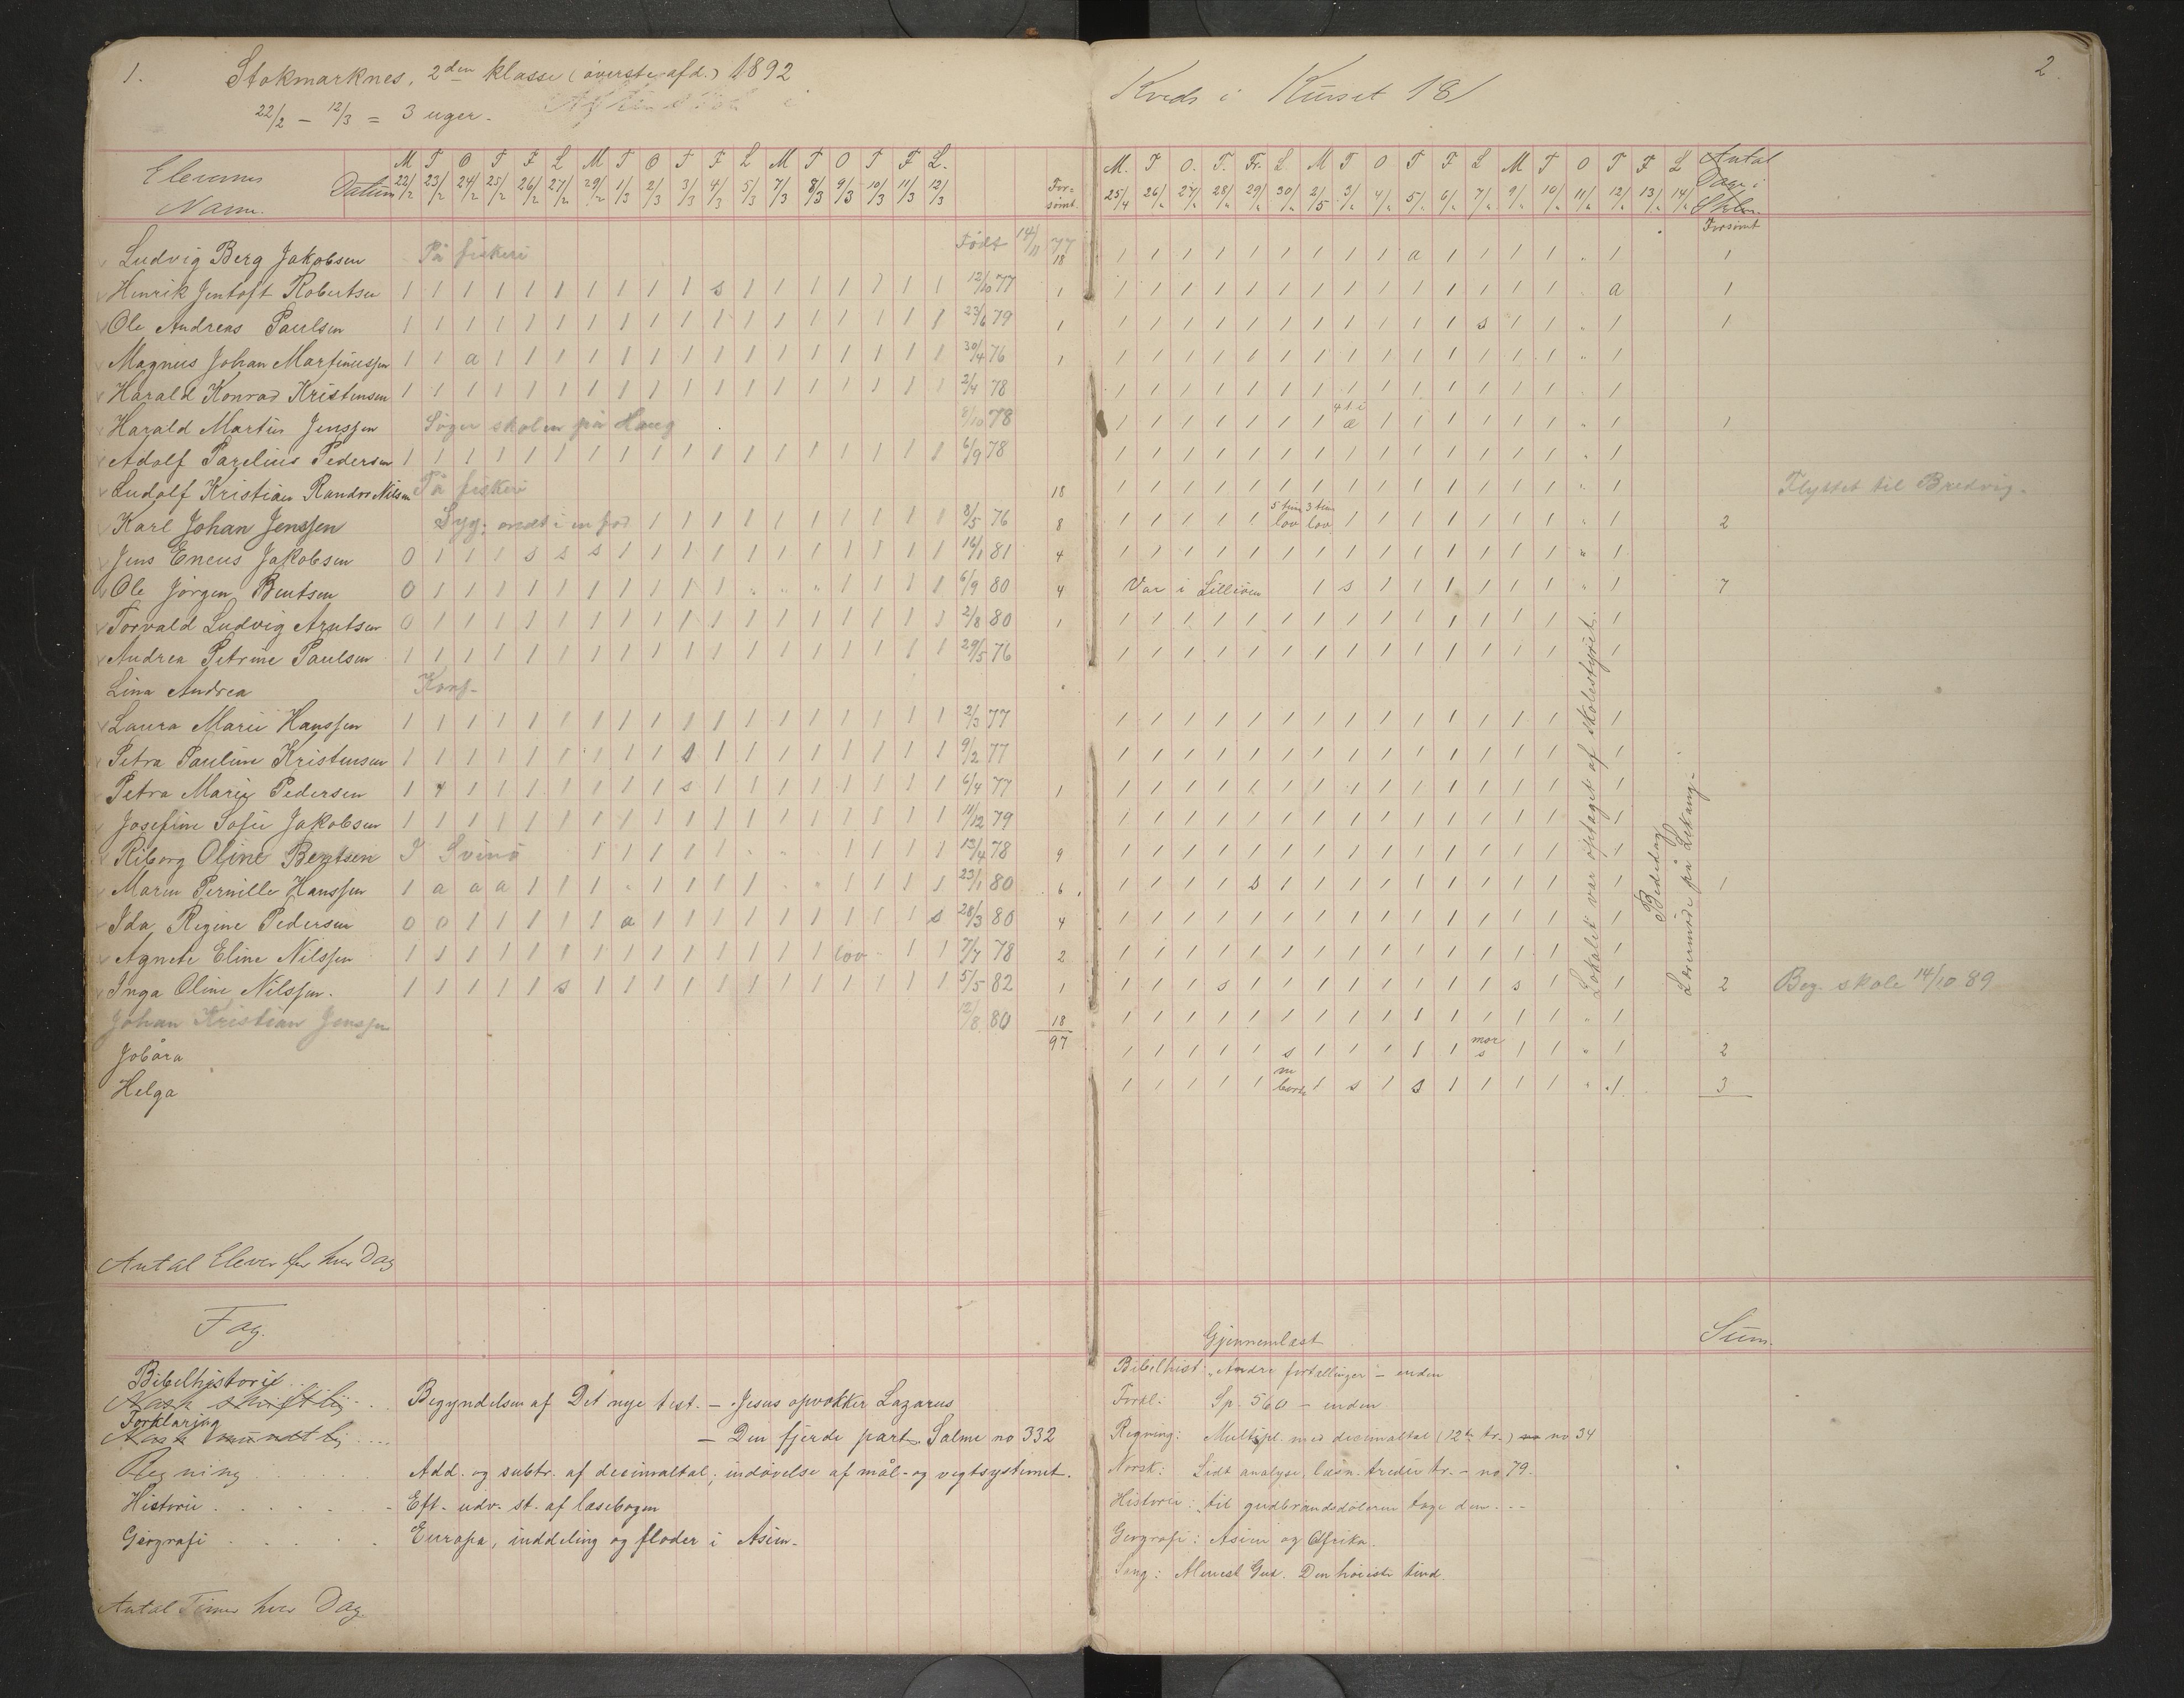 1. Stokmarknes, 2den klasse (överste afd.) 1892
22/2 – 12/3 = 3 uger.
M T O T F L M T O T F L M T O T F L.
Elevernes Navn. Datum 22/2 23/2 24/2 25/2 26/2 27/2 29/2 1/3 2/3 3/3 4/3 5/3 7/3 8/3 9/3 10/3 11/3 12/3 Forsömt
Ludvig Berg Jakobsen På fiskeri Födt 14/11 77 18
Henrik Jentoft Robertsen 1 1 1 1 1 1 1 1 1 1 s 1 1 1 1 1 1 1 12/10 77 1
Ole Andreas Paulsen 1 1 1 1 1 1 1 1 1 1 1 1 1 1 1 1 1 1 23/6 79 1
Magnus Johan Martinussen 1 1 a 1 1 1 1 1 1 1 1 1 1 1 1 1 1 1 30/4 76 1
Harald Konrad Kristensen 1 1 1 1 1 1 1 1 1 1 1 1 1 1 1 1 1 1 2/4 78
Harald Martin Jenssen Söger skolen på Haug 8/10 78
Adolf Parelius Pedersen 1 1 1 1 1 1 1 1 1 1 1 1 1 1 1 1 1 1 6/9 78
Ludolf Kristian Randor Nilsen På fiskeri 18
Karl Johan Jenssen Syg; ondt i en fod 1 1 1 1 1 1 1 1 1 1 8/5 76 8
Jens Eneus Jakobsen 0 1 1 1 s s s 1 1 1 1 1 1 1 1 1 1 1 16/1 81 4
Ole Jörgen Bentsen 0 1 1 1 1 1 1 1 1 1 1 " " " 1 1 1 1 6/9 80 4
Torvald Ludvig Arntsen 0 1 1 1 1 1 1 1 1 1 1 1 1 1 1 1 1 1 2/8 80 1
Andrea Petrine Paulsen 1 1 1 1 1 1 1 1 1 1 1 1 1 1 1 1 1 1 29/5 76
Lina Andrea Konf-
Laura Marie Hanssen 1 1 1 1 1 1 1 1 1 1 1 1 1 1 1 1 1 1 2/3 77
Petra Pauline Kristensen 1 1 1 1 1 1 1 1 1 s 1 1 1 1 1 1 1 1 9/2 77
Petra Marie Pedersen 1 1 1 1 1 1 1 1 s 1 1 1 1 1 1 1 1 6/4 77 1
Josefine Sofie Jakobsen 1 1 1 1 1 1 1 1 1 1 1 1 1 1 1 1 1 1 11/12 79
Riborg Oline Bentsen I Svinö 1 1 1 1 1 " " 1 1 1 1 13/4 78 9
Maren Pernille Hanssen 1 a a a 1 1 1 " 1 1 1 1 " " 1 1 1 1 23/1 80 6
Ida Regine Pedersen 0 0 1 1 1 1 1 a 1 1 1 1 1 1 1 1 1 s 28/3 80 4
Agnete Eline Nilssen 1 1 1 1 1 1 1 1 1 1 1 1 1 1 lov " 1 1 7/7 78 2
Inga Oline Nilssen. 1 1 1 1 1 s 1 1 1 1 1 1 1 1 1 1 1 1 5/5 82 1
Johan Kristian Jenssen 12/8 80 18
Jobára 97
Helga
Antal Elever for hver Dag
Fag.
Bibelhistorie
Norsk skriftlig Begyndelsen af Det nye test. – Jesus opvækker Lazarus
Forklaring
Norsk mundtlig – Den fjerde part. Salme no 332
Regning Add. og subtr. af decimaltal; indövelse af mål- og vegtsystemet.
Historie Eft. udv. st. af læsebogen
Geografi Europa, inddeling og floder i Asien.
Antal Timer hver Dag.
2
Kveds i Kurset 181
M. T O. T. Fr. L M T O T F L M T O T F L Antal Dage i Skolen
25/4 26/ 27/ 28/ 29/ 30/ 2/5 3/ 4/ 5/ 6/ 7/ 9/ 10/ 11/ 12/ 13/ 14/ Forsömt
1 1 1 1 1 1 1 1 1 a 1 1 1 1 " 1 1
1 1 1 1 1 1 1 1 1 1 1 1 1 1 " a 1
1 1 1 1 1 1 1 1 1 1 1 s 1 1 " 1 1
1 1 1 1 1 1 1 1 1 1 1 1 1 1 " 1
1 1 1 1 1 1 1 1 1 1 1 1 1 1 1
1 1 1 1 1 1 1 a 1 1 1 1 1 1 " 1 1
1 1 1 1 1 1 1 1 1 1 1 1 1 1 " 1
1 1 1 1 1 1 1 1 1 1 1 1 1 1 " 1 Flyttet til Bredvig.
5 tim 3 tim
1 1 1 1 1 lov lov 1 1 1 1 1 1 1 " 1 2
1 1 1 1 1 1 1 1 1 1 1 1 1 1 " 1
Var i Lilliöen 1 s 1 1 1 1 1 1 " 1 7
1 1 1 1 1 1 1 1 1 1 1 1 1 1 1
1 1 1 1 1 1 1 1 1 1 1 1 1 1 1
1 1 1 1 1 1 1 1 1 1 1 1 1 1 1
1 1 1 1 1 1 1 1 1 1 1 1 1 1 1
1 1 1 1 1 1 1 1 1 1 1 1 1 1 1
1 1 1 1 1 1 1 1 1 1 1 1 1 1 1
1 1 1 1 1 1 1 1 1 1 1 1 1 1 1
1 1 1 1 s 1 1 1 1 1 1 1 1 1 1 1
1 1 1 1 1 1 1 1 1 1 1 1 1 1 1
1 1 1 1 1 1 1 1 1 1 1 1 1 1 1
1 1 1 s 1 1 1 1 1 1 1 1 s 1 1 2 Beg. skole 14/10 89
1 1 1 1 1 1 1 1 1 1 1 1 1 1 " 1
mor
1 1 1 1 1 s 1 1 1 1 1 s 1 1 " 1 2
1 1 1 1 1 1 s 1 s 1 1 1 1 " 1 3
Lokalet var optaget af skolestyret.
Bededag
Lærermöde på Lekang
Gjennemlæst Sum.
Bibelhist: "Andre fortællinger" – enden
Forkl: Sp. 560 – enden
Regning: Multipl. med decimaltal (12te tr.) no 34
Norsk: Lidt analyse, læsn. tredie tr. – no 79.
Historie: til gudbrandsdölerne tage dem. --
Geografi: Asien og Afrika.
Sang: Alenest Gud. Den höieste tind.